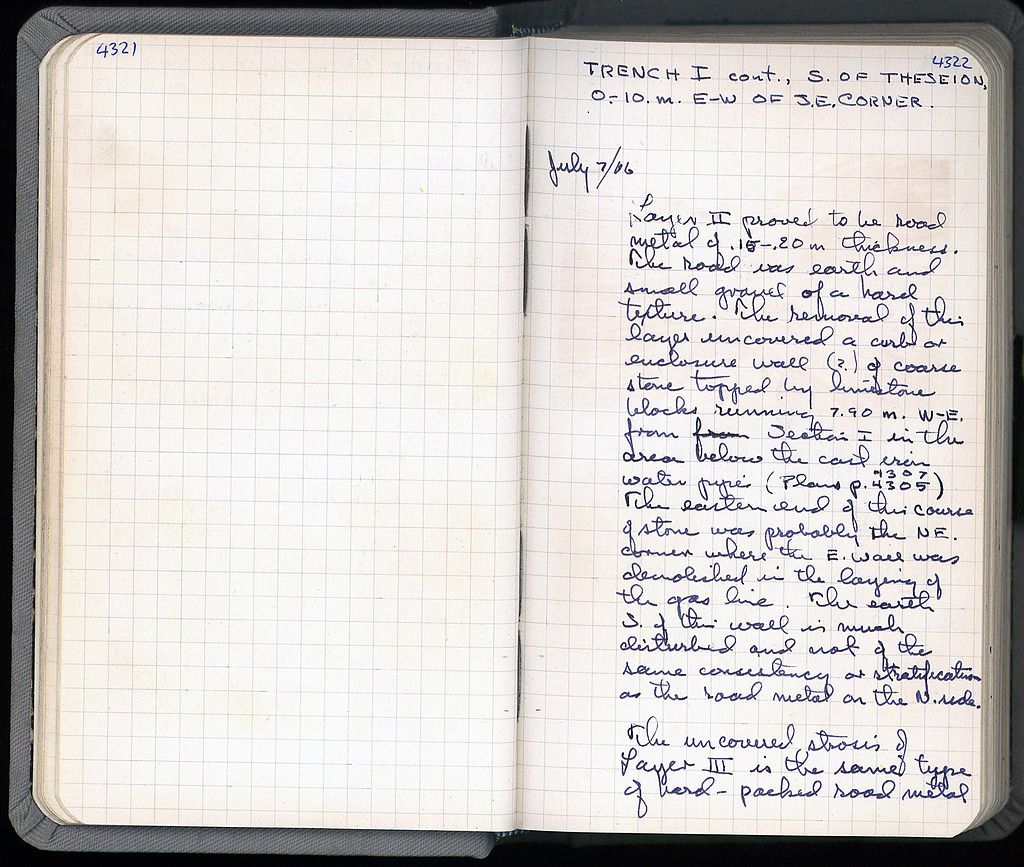 4321
4322
TRENCH I cont., S. OF THESEION,
0-10. m. E-W OF S.E. CORNER.
July 7/06
Layer II proved to be road
metal of .15-.20 m thickness.
The road was earth and
small gravel of a hard
texture. The removal of this
layer uncovered a curb or
enclosure wall (?) of coarse
stone topped by limestone
blocks running 7.90 m. W-E.
from from Section I in the
area below the cast iron
4307
water pipe (Plans p. 4305)
The eastern end of this course
of stone was probably the NE.
corner where the E. wall was
demolished in the laying of
the gas line. The earth
S. of this wall is much
disturbed and not of the
same consistency or stratification
as the road metal on the N. side.
The uncovered strosis of
Layer III is the same type
of hard-packed road metal